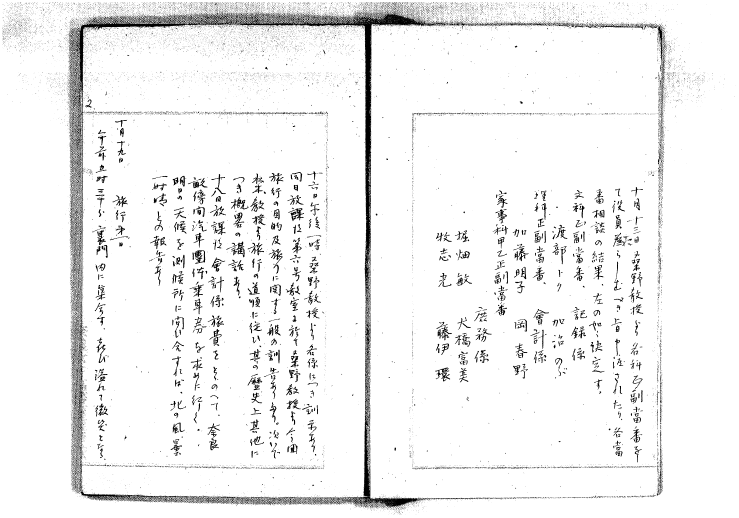 十月十三日 桑野教授より各科正副當番を
て役員たらしむべき旨申渡されたり、各當
番相談の結果、左の如く決定す。
文科正副當番、 記録係
渡部トク 加治のぶ
理科正副當番、 會計係
加藤明子 岡春野
家事科甲乙正副當番
庶務係
堀畑敏 犬橋富美
牧志光 藤伊環
2
十六日午後一時桑野教授より各係につき訓示あり、
同日放課後第六号教室に於て桑野教授より今回
旅行の目的及旅行に関する一般の訓告あり、次いで
松本教授より旅行の道順に従い其の歴史上其他に
つき概畧の講話あり。
十八日放課後會計係旅費をとゝのへて、奈良
停車場へ汽車團体乗車券を求めに行く。
明日の天候を測候所に問い合すれば、北の風曇
一時晴との報告あり
十月十九日 旅行第一日
午前五時三十分裏門内に集合す。喜び溢れて微笑となり、